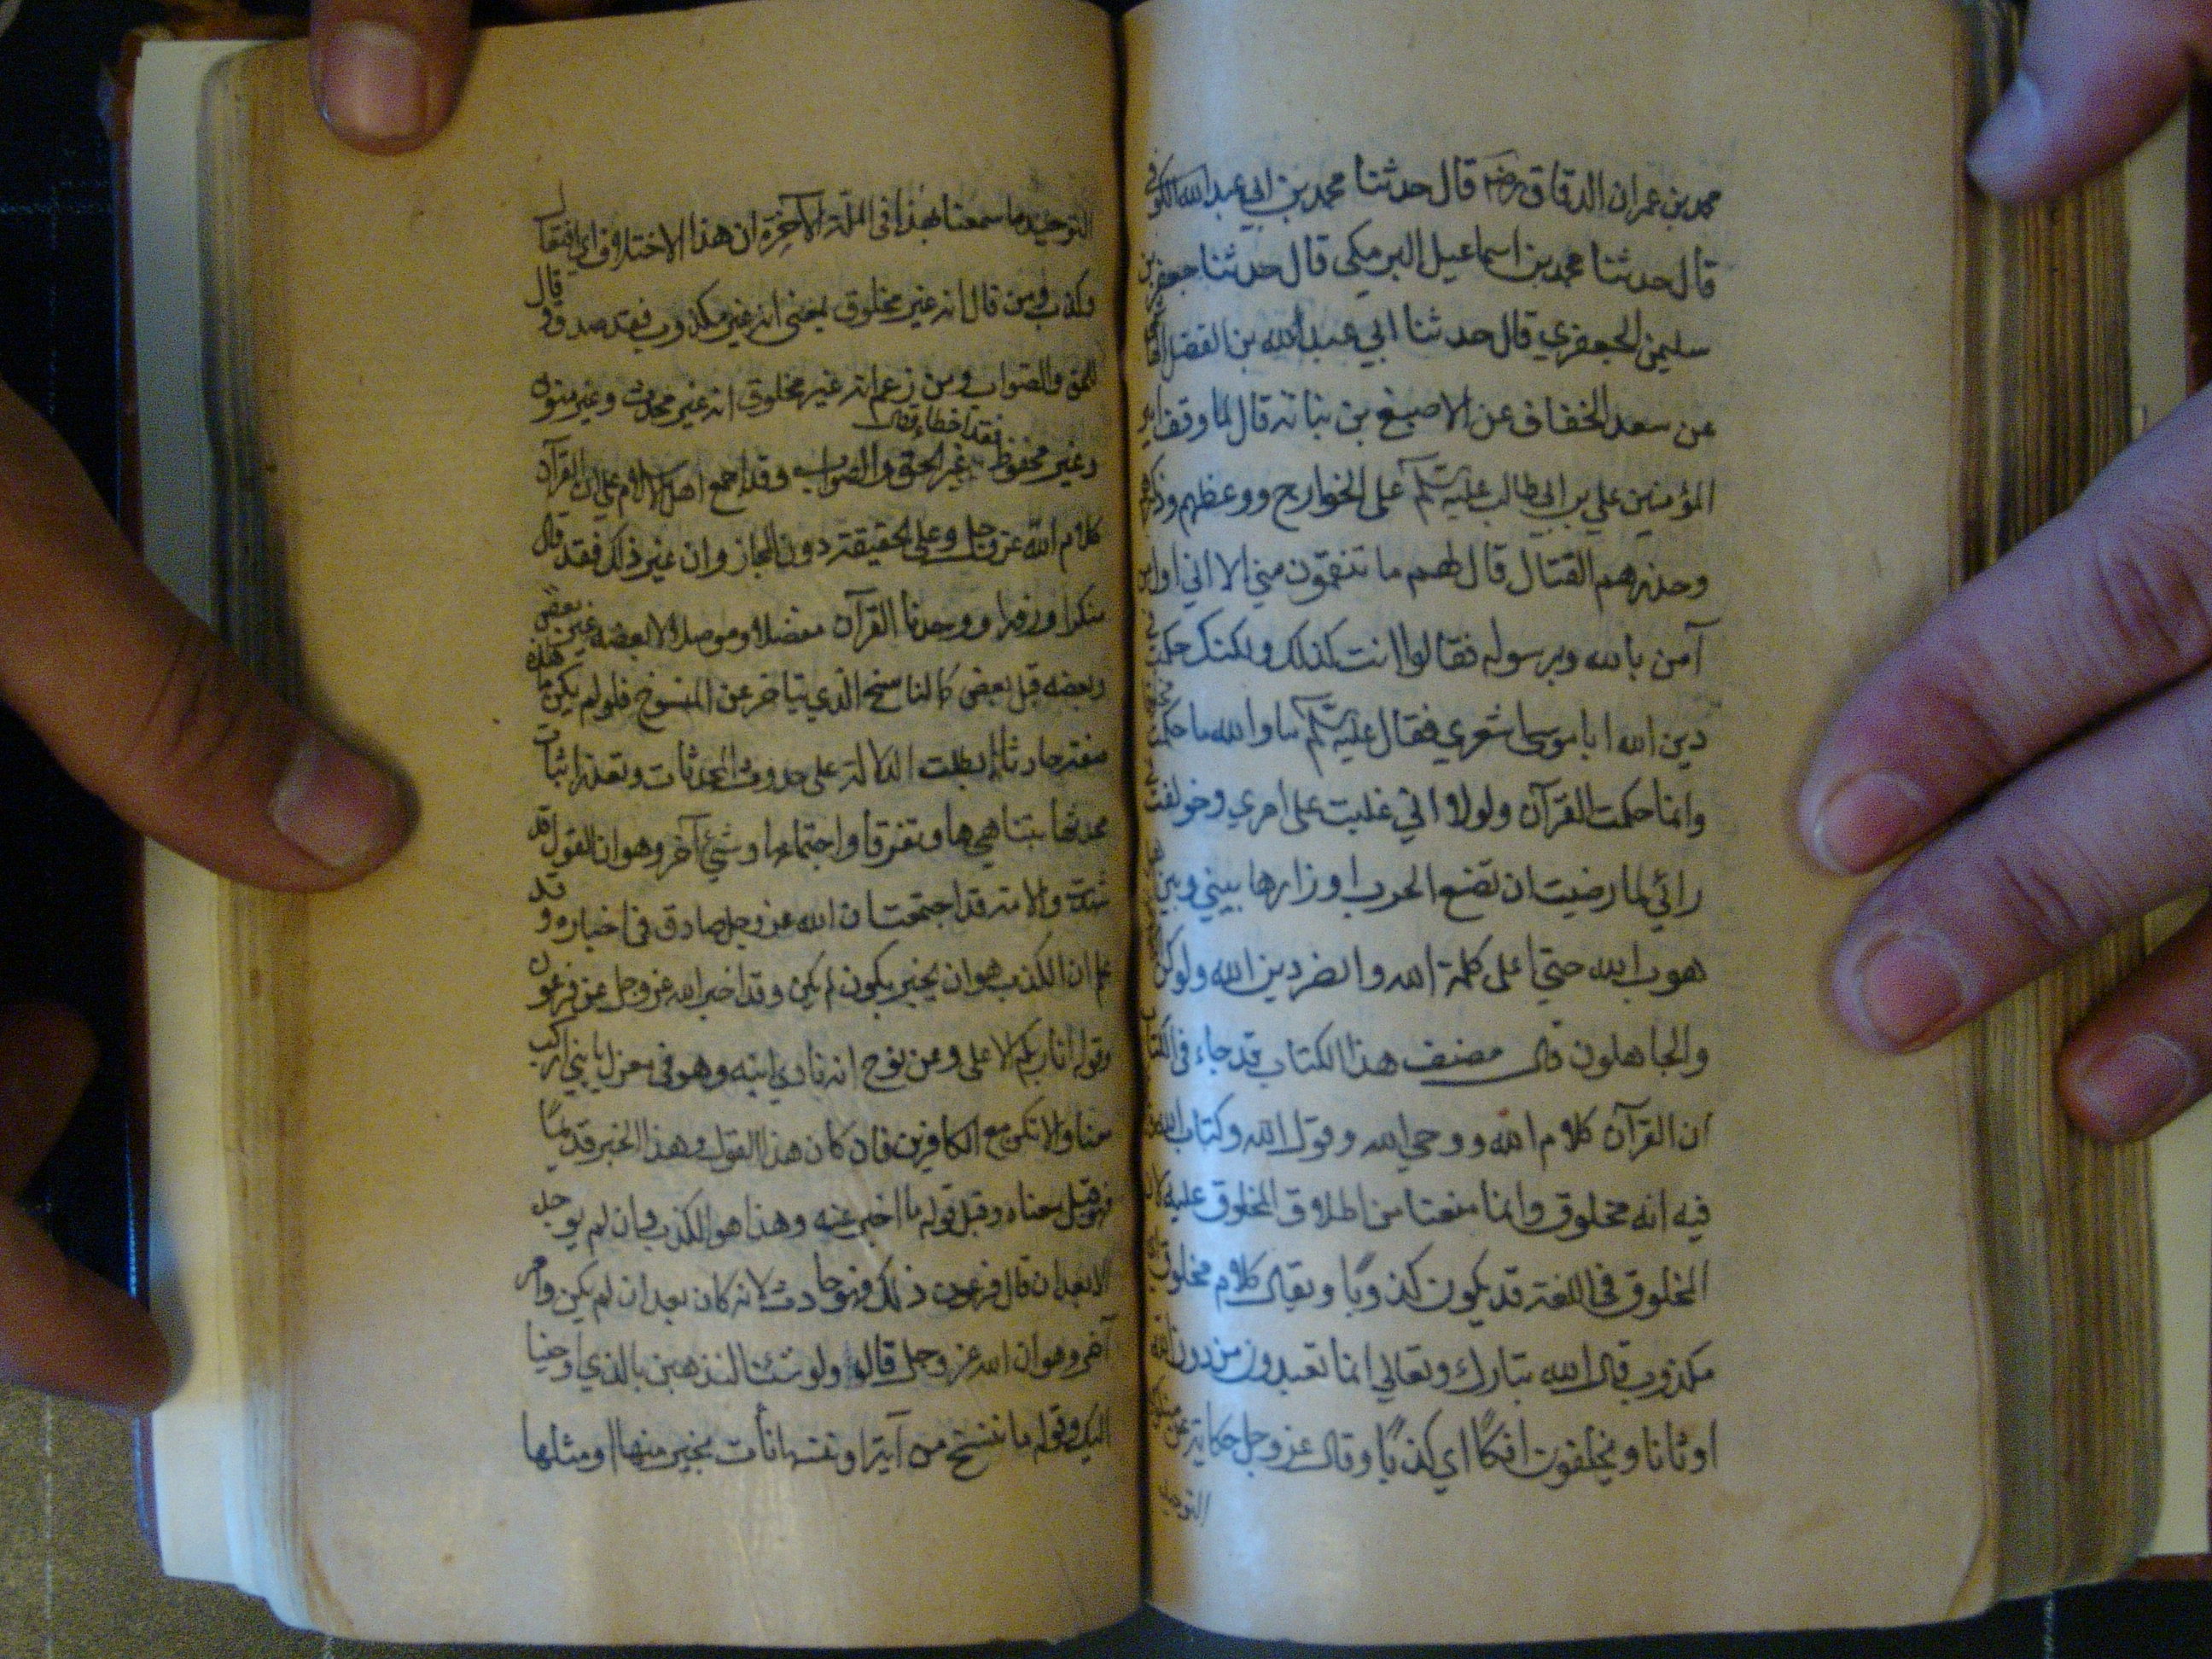 محمد بن عمران الدقاق رضه قال حدثنا محمد بن ابي عبد الله الكوفي
قال حدثنا محمد بن اسماعيل البرمكي قال حدثنا جعفر بن
سليمن الجعفري قال حدثنا ابي عبد الله بن الفضل
عن سعد الخفاف عن الاصبغ بن نباته قال لما وقف امير
المؤمنين علي بن ابي طالب عليه السلم على الخوارج ووعظهم وذكرهم
وحذرهم القتال قال لهم ما تنقمون مني الا اني اول من
آمن بالله وبرسوله فقالوا انت كذلك ولكنك حكمت في
دين الله ابا موسى اشعري فقال عليه السلم ما والله ما حكمت
وانما حكمت القرآن ولولا اني غلبت على امري وخولفت في
رائي لما رضيت ان تضع الحرب اوزارها بيني وبين
حرب الله حتي اعلى كلمة الله وانضر دين الله ولو كره
والجاهلون قال مصنف هذا الكتاب قد جاء في الكتاب
ان القرآن كلام الله ووحي الله وقول الله وكتاب الله
فيه انه مخلوق وانما منعنا من اطلاق المخلوق عليه لان
المخلوق في اللغة قد يكون كذوبًا ويقال كلام مخلوق اي
مكذوب قال الله تبارك وتعالي انما تعبدون من دون الله
اوثانا ويخلقون افكًا اي كذبًا وقال عز وجل حكاية عن
التوحيد
التوحيد ما سمعنا بهذا في الملة الآخرة ان هذا الاختلاق اي افتعال
وكذب فمن قال انه غير مخلوق بمعني انه غير مكذوب فقد صدق وقال
الحق والصواب ومن زعم انه غير مخلوق انه غير محدث وغير منزل
وغير محفوظ فقد اخطاء وقال غير الحق والصواب وقد اجمع اهل الاسلام على ان القرآن
كلام الله عز وجل وعلى الحقيقة دون المجاز وان غير ذلك فقد قال
منكرا وزورا ووجدنا القرآن مفضلا وموصلا الا بعضه غير بعض
وبعضه قبل بعض كالناسخ الذي يتاخر عن المنسوخ فلو لم يكن ما هذه
صفته حادثا بطلت الدلالة على حدوث المحدثات وتعذر اثبات
محدثها بتناهيها وتفرقا واجتماعها وشيء آخر وهو ان القول قد
شهدت والامة قد اجتمعت ان الله عز وجل صادق في اخباره وقد
علم ان الكذب هو ان يخبر بكون لم يكن وقد اخبر الله عز وجل عن فرعون
وقوله انا ربكم الاعلى وعن نوح انه نادى ابنه وهو في معزل يا بني اركب
معنا ولا تكن مع الكافرين فان كان هذا القول وهذا الخبر قديمًا
فهو قبل معناه وقبل قوله ما اخبر عنه وهذا هو الكذب وان لم يوجد
الا بعد ان قال فرعون ذلك فهو حادث لانه كان بعد ان لم يكن وامر
آخر وهو ان الله عز وجل قال ولو شئنا لنذهبن بالذي اوحينا
اليك وقوله ما ننسخ من آية او ننسها نأت بخير منها او مثلها